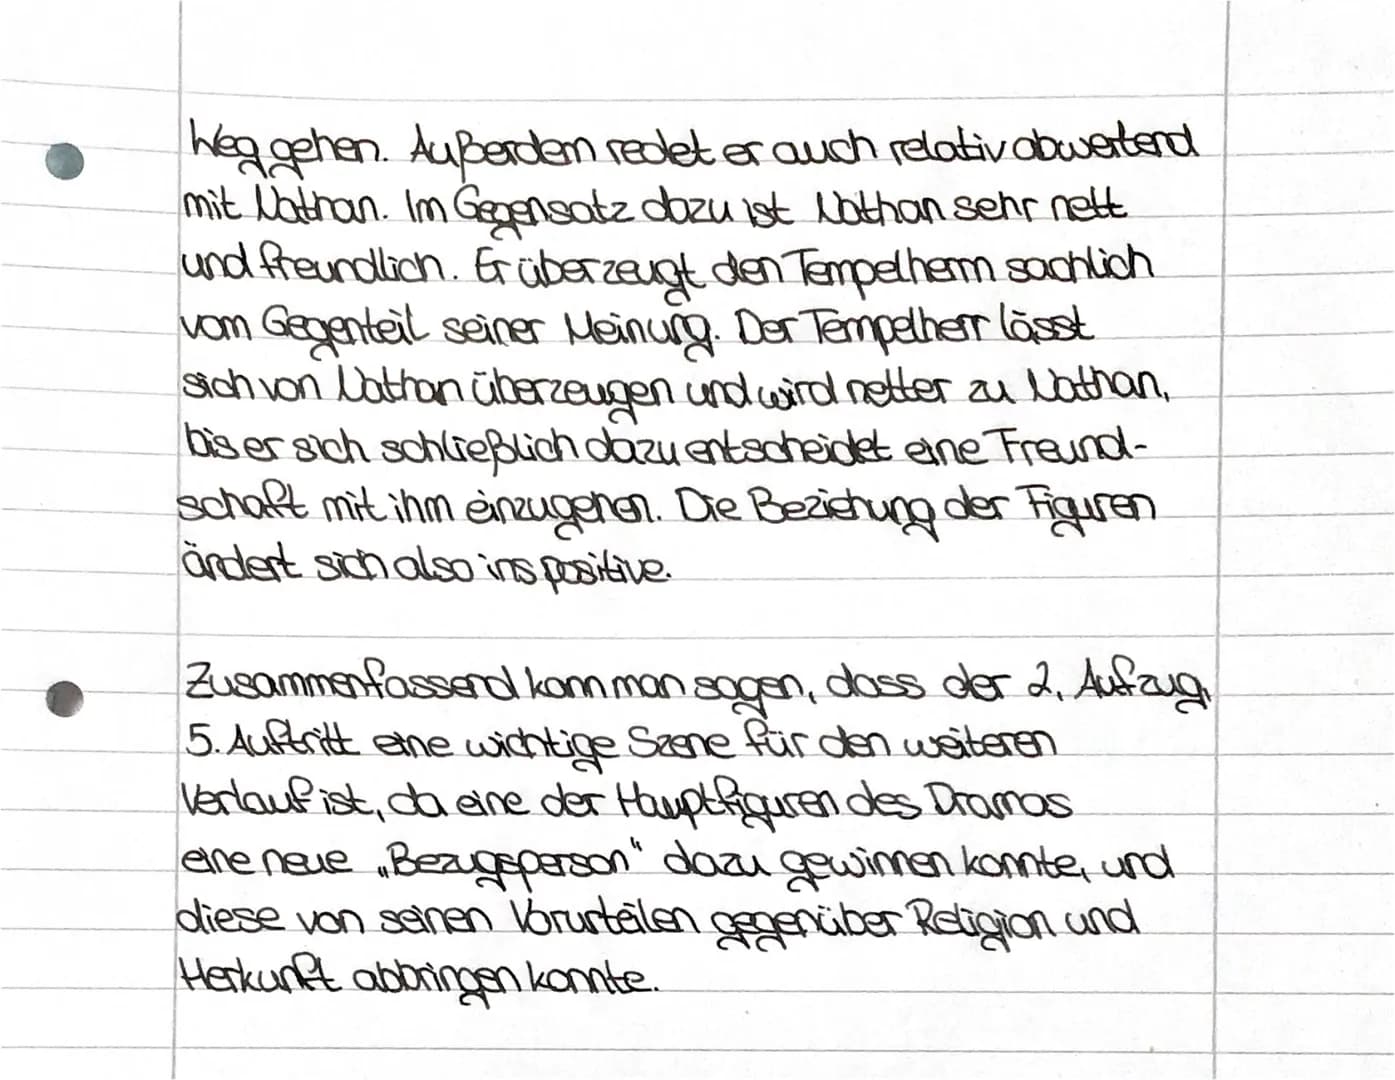 Weg gehen. Außerdem redet er auch relativ abwertend
mit Nathan. Im Gegensatz dazu ist Nathan sehr nett
und freundlich. Er überzeugt den Tempelherrn sachlich
vom Gegenteil seiner Meinung. Der Tempelherr lässt
sich von Nathan überzeugen und wird netter zu Nathan,
bis er sich schließlich dazu entscheidet eine Freund-
schaft mit ihm einzugehen. Die Beziehung der Figuren
ändert sich also ins positive.
Zusammenfassend kann man sagen, dass der 2. Aufzug,
5. Auftritt eine wichtige Szene für den weiteren
Verlauf ist, da eine der Hauptfiguren des Dramas
eine neue „Bezugsperson“ dazu gewinnen konnte, und
diese von seinen Vorurteilen gegenüber Religion und
Herkunft abbringen konnte.